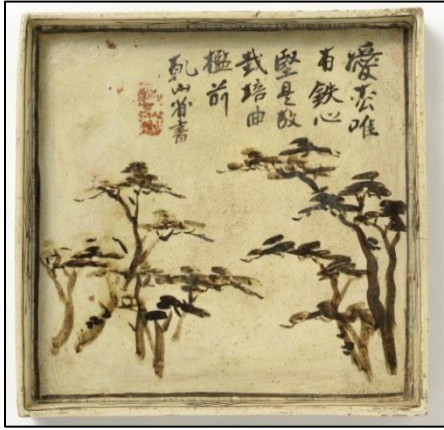 愛枩唯
有鉄心
堅是故
栽培曲
檻前
乾山省書